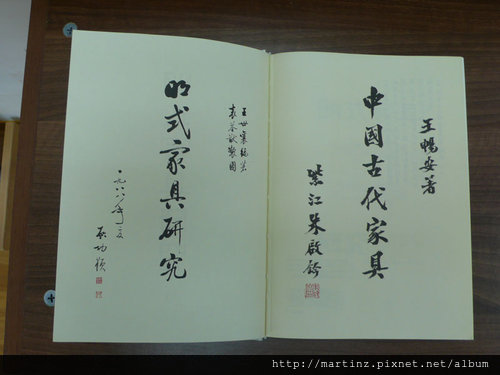 王暢安著
中国古代家具
紫江朱啟鈐
王世襄編著
袁荃猷製圖
明式家具研究
一九八八年夏
启功题
http://martinz.pixnet.net/album